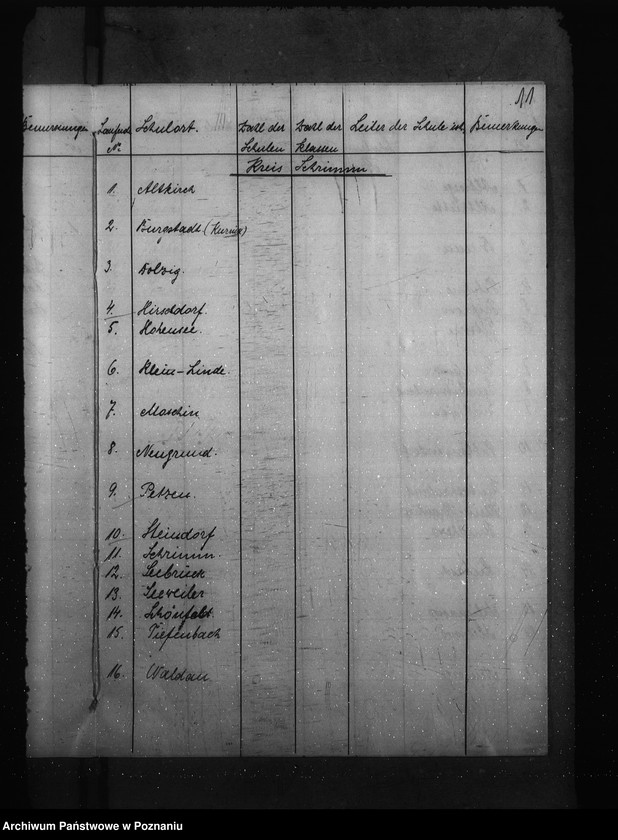 11
Bemerkungen Laufende Schulort. Zahl der Zahl der Leiter der Schule ist Bemerkungen
Nr. Schulen Klassen
Kreis Schrimm
1. Altkirch
2. Burgstadt (Kurnik)
3. Dolzig.
4. Hirschdorf.
5. Hohensee.
6. Klein-Linde.
7. Moschin
8. Neugrund.
9. Petzen.
10. Steindorf
11. Schrimm.
12. Seebrück
13. Seeweiler
14. Schönfeldt.
15. Tiefenbach
16. Waldau
Archiwum Państwowe w Poznaniu